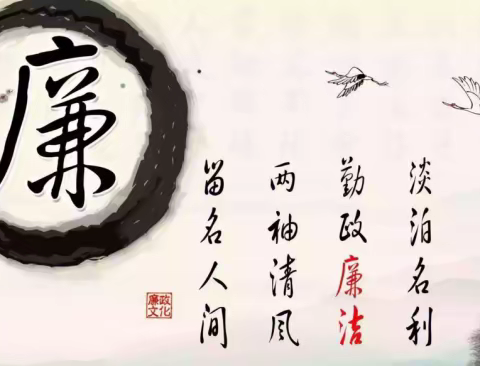 廉
淡泊名利
勤政廉洁
两袖清风
留名人间
廉政
文化